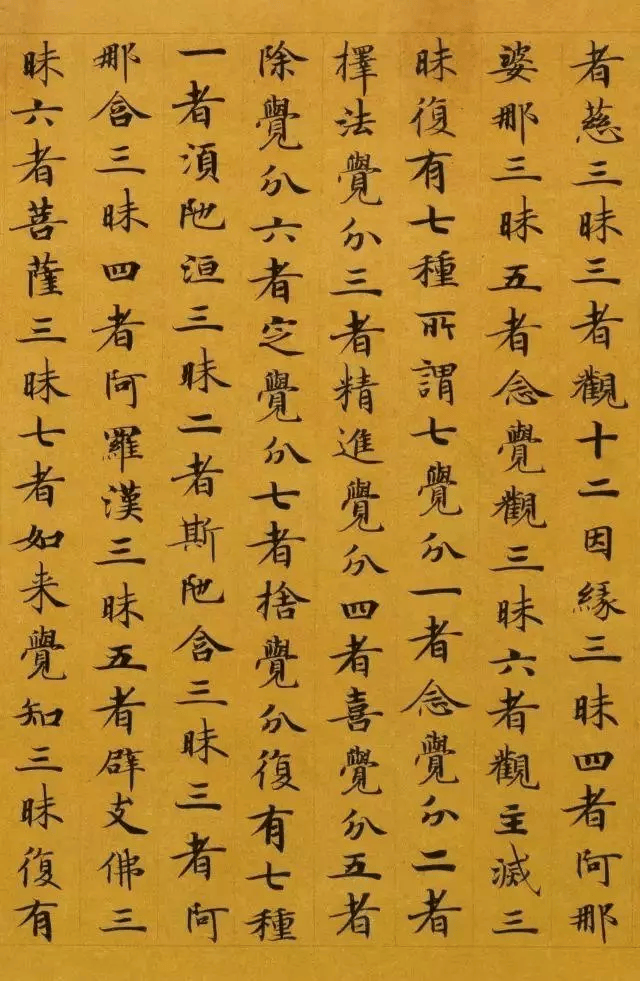 者慈三昧三者觀十二因緣三昧四者阿那
婆那三昧五者念覺觀三昧六者觀主滅三
昧復有七種所謂七覺分一者念覺分二者
擇法覺分三者精進覺分四者喜覺分五者
除覺分六者定覺分七者捨覺分復有七種
一者湏陁洹三昧二者斯陁含三昧三者阿
那含三昧四者阿羅漢三昧五者辟支佛三
昧六者菩薩三昧七者如来覺知三昧復有